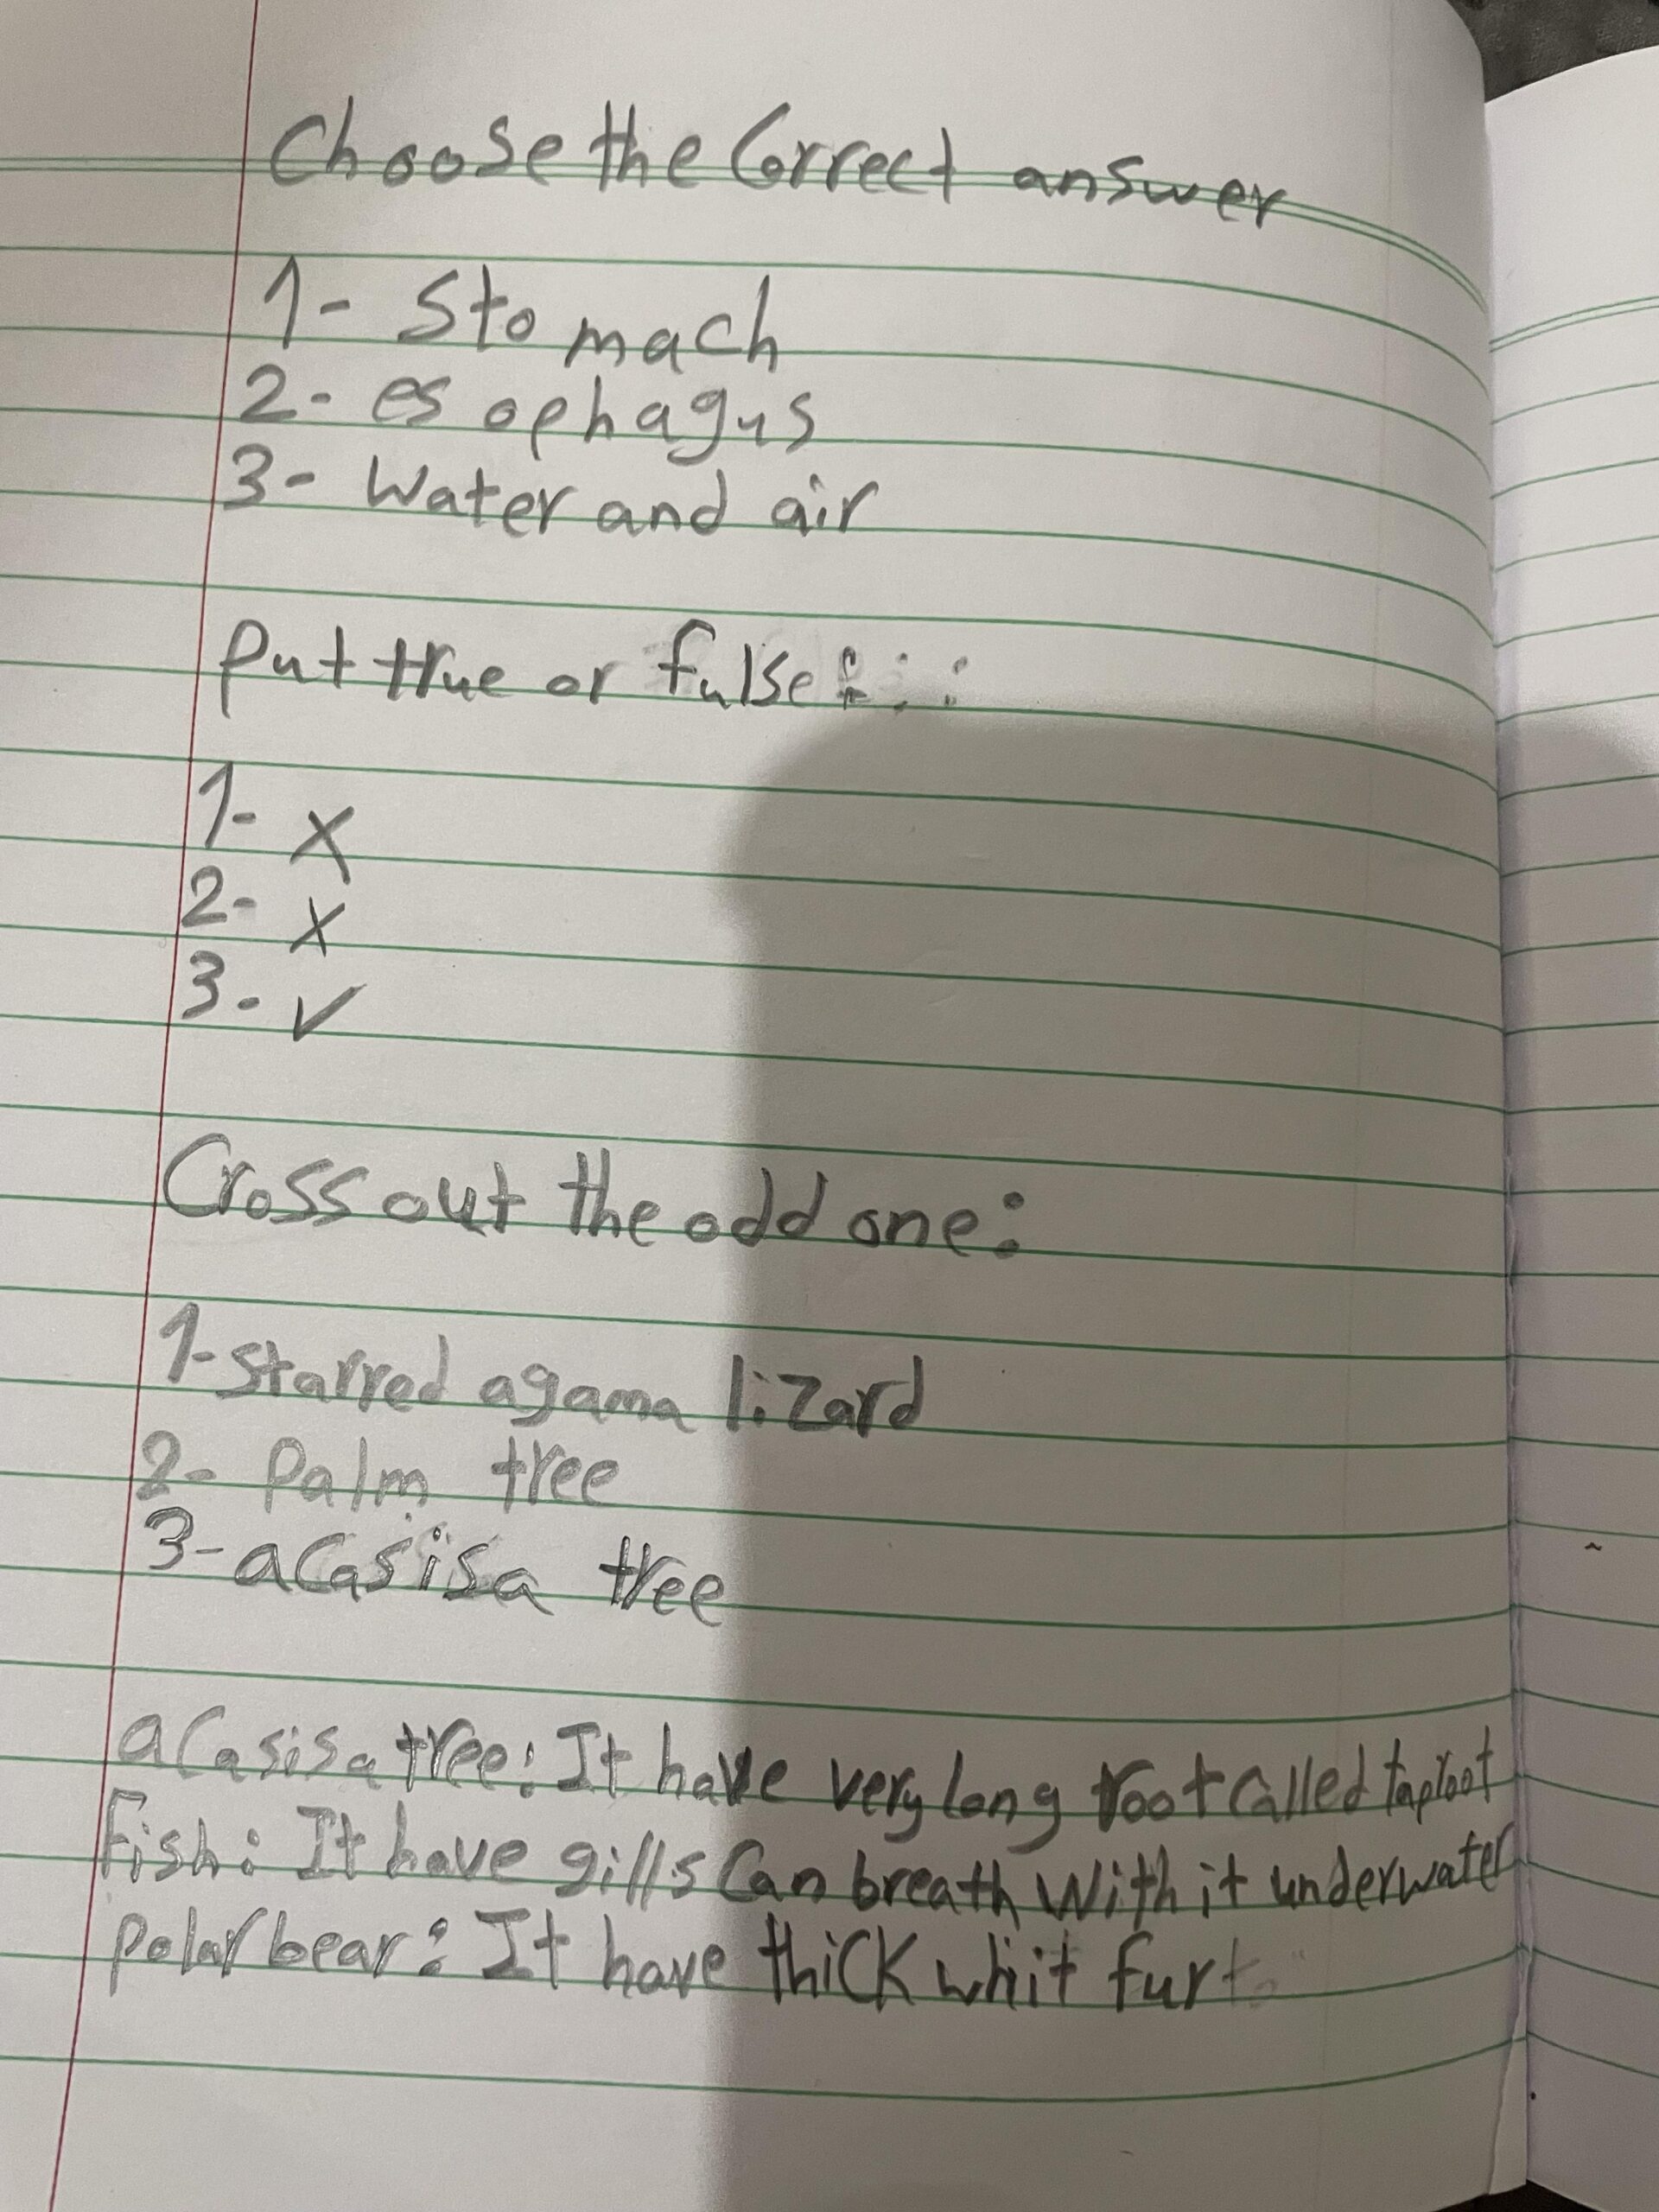 Choose the Correct answer
1- Stomach
2- esophagus
3- Water and air
Put true or fulse :
1- X
2- X
3- ✓
Cross out the odd one:
1- Starred agama lizard
2- Palm tree
3- acasisa tree
acasisa tree: It have very long root called taproot
Fish: It have gills Can breath With it underwater
Polar bear: It have thick whit fur